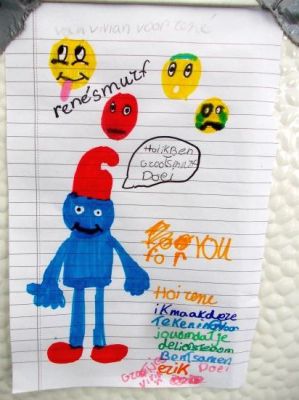 van vivian voor rené
renésmurf
Hoi ik Ben
Groot smurf
Doei
YOU
for
Hoi rene
ik maak deze
tekening voor
jou omdat je
de liefste bom
Bent samen
erik Doei
Groetjes